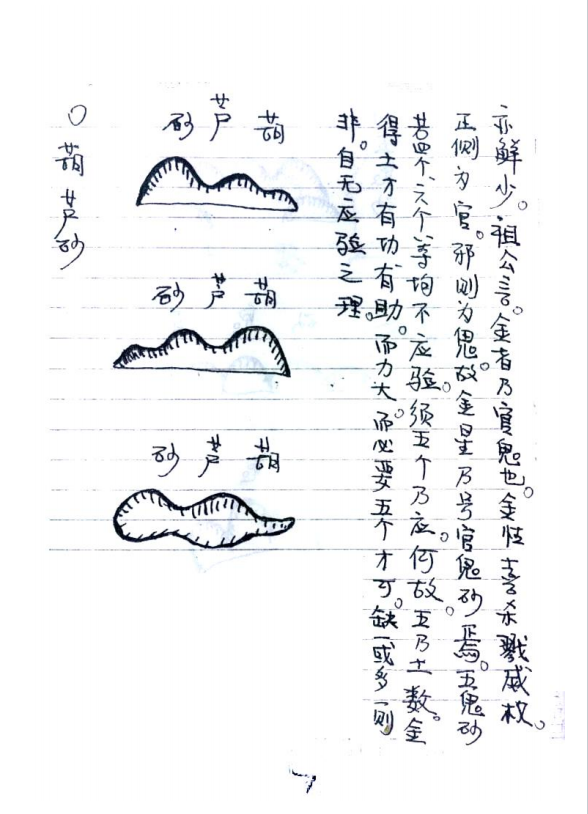 亦鲜少。祖公言。金者乃官鬼也。金性喜杀戮威权。
正侧为官。邪则为鬼。故金星乃号官鬼砂焉。五鬼砂
若四个、六个等均不应验。须五个乃应。何故。五乃土数。金
得土才有功有助。而力大。而必要五个才可。缺一或多则
非。自无应验之理。
葫芦砂
葫芦砂
葫芦砂
〇葫芦砂